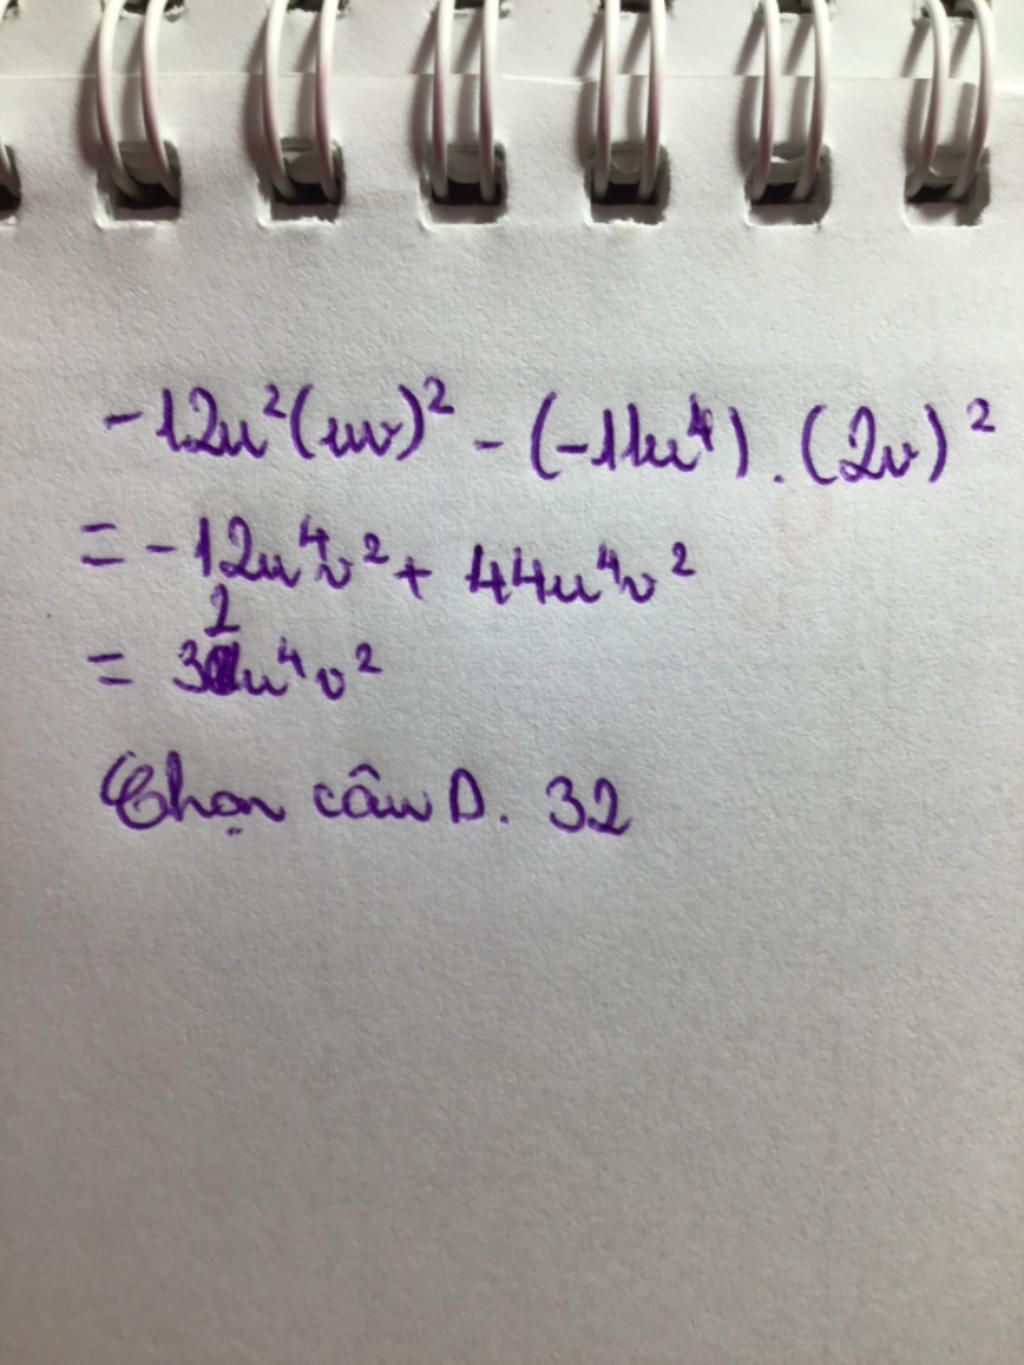 -12u²(uv)² - (-11u⁴).(2v)²
= -12u⁴v² + 44u⁴v²
= 32u⁴v²
Chọn câu D. 32